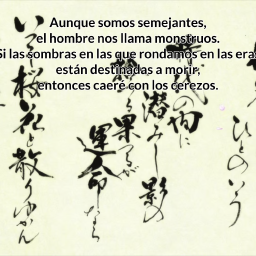 Aunque somos semejantes,
el hombre nos llama monstruos.
Si las sombras en las que rondamos en las eras
están destinadas a morir,
entonces caeré con los cerezos.
ひとのいう
の間に
潜みし影の
果つるが
運命なら
いざ桜花と散りゆかん